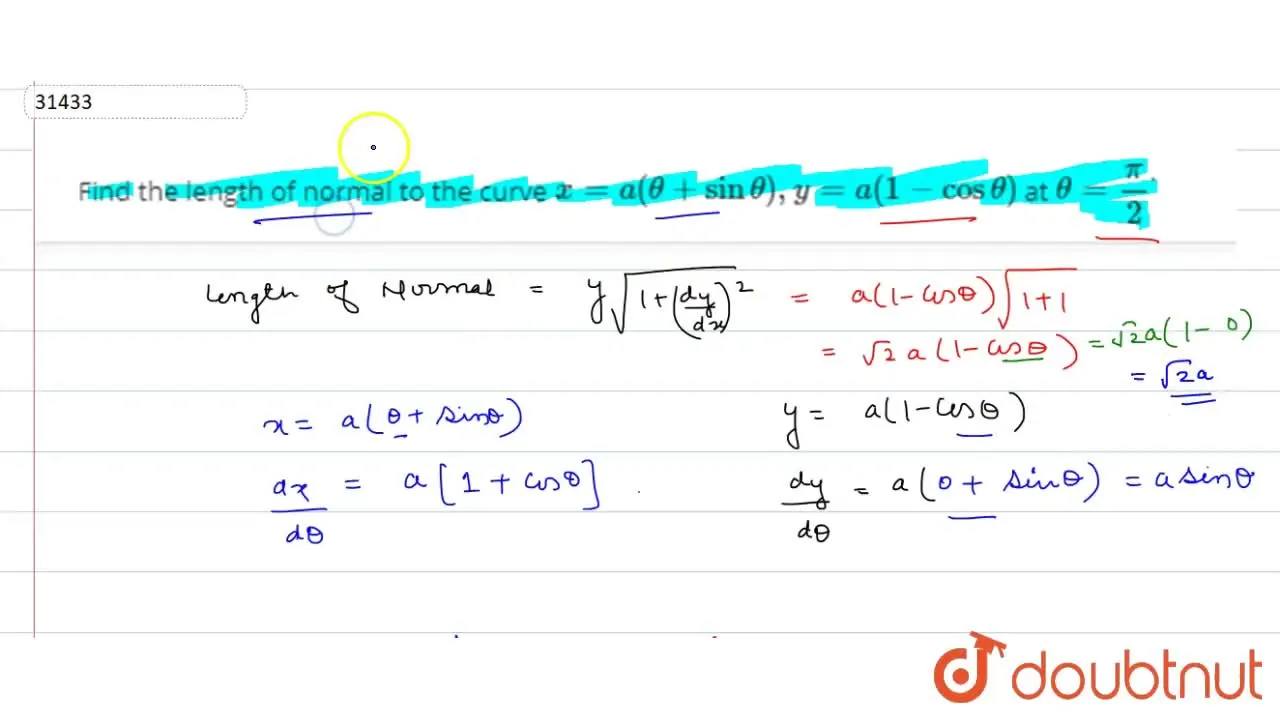 31433
Find the length of normal to the curve x = a(θ + sin θ), y = a(1 − cos θ) at θ = π/2.
Length of Normal = y√(1+(dy/dx)²) = a(1-cosθ)√(1+1)
= √2 a(1-cosθ) = √2a(1-0)
= √2a
x = a(θ+sinθ) y = a(1-cosθ)
dx/dθ = a[1+cosθ] . dy/dθ = a(0+sinθ) = a sinθ
doubtnut